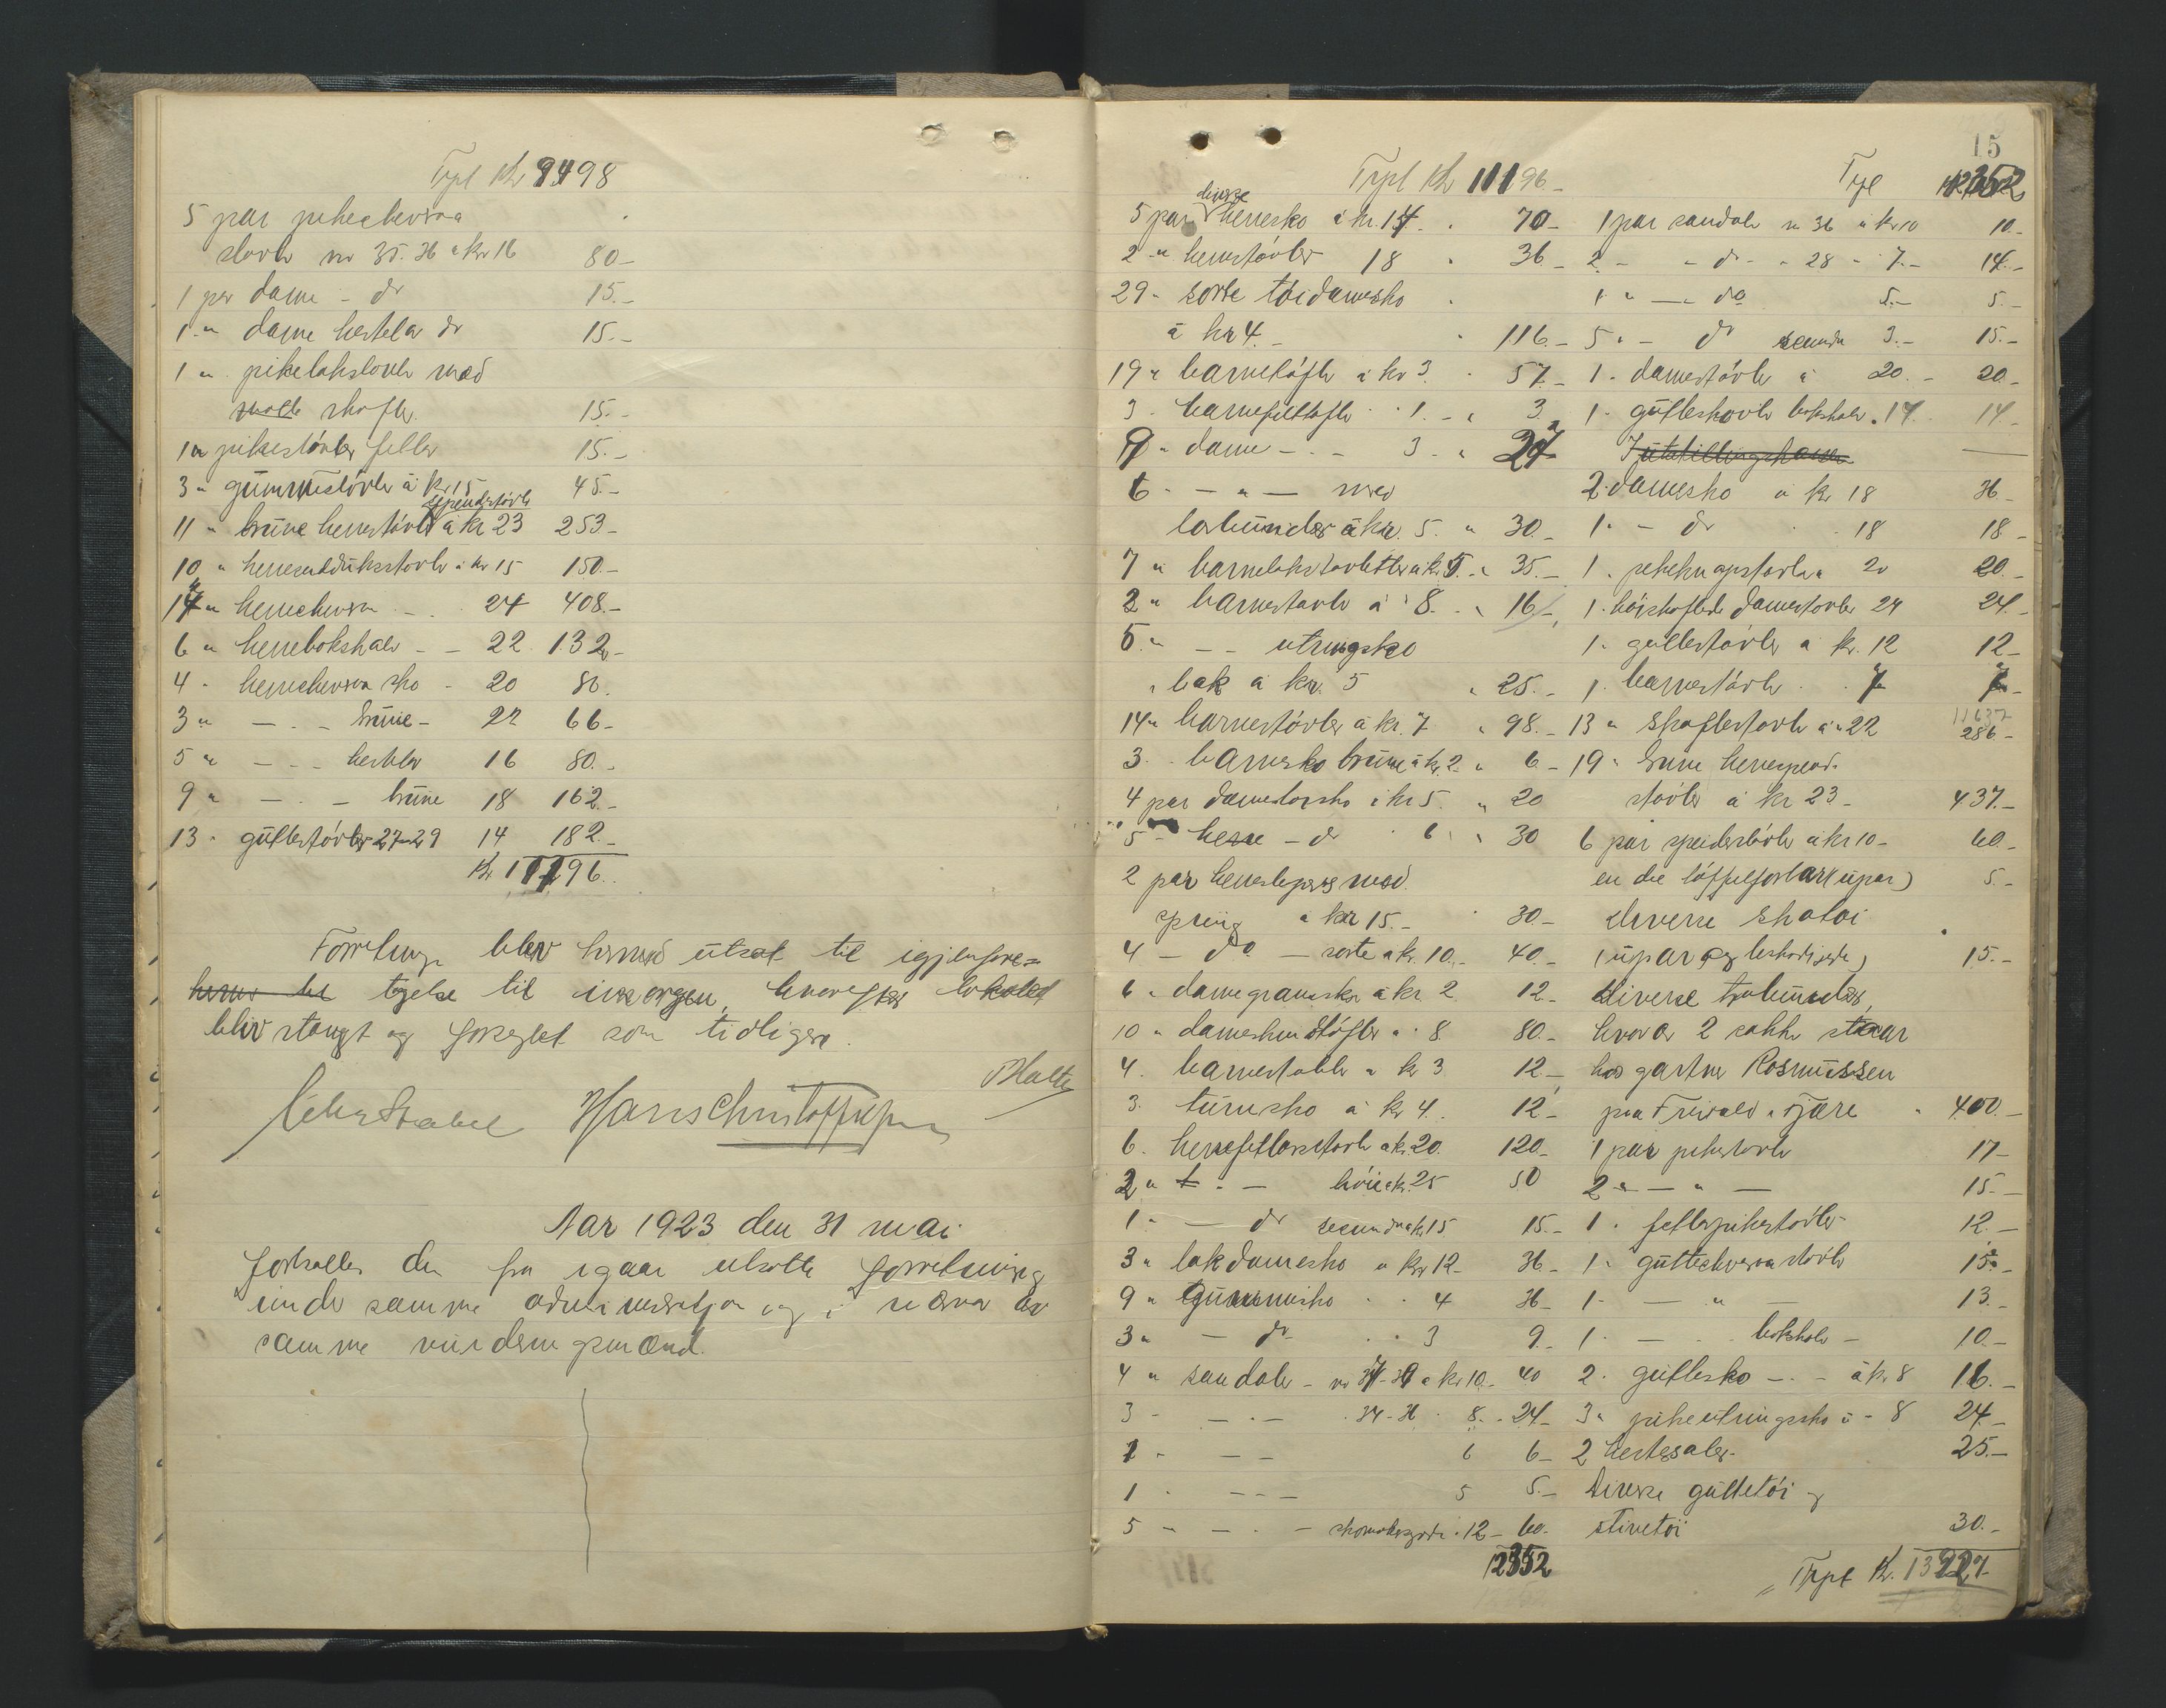 Trpt Kr 9498
5 par pikechevraux
støvler no 35-36 à kr 16 80-
1 par dame - do 15.-
1 " dame hestelær do 15.-
1 " pikelakstøvler med
matte skafter. 15.-
1 " pikestøvler feller 15.-
3 " gummistøvler à kr 15 45.-
speiderstøvler
11 " brune herrestøvler à kr 23 253-
10 " herreseilduksstøvler à kr 15 150.-
17 " herrechevrau - 24 408.-
6 " herrebokskalv - - 22 132-
4 " herrechevrau sko - 20 80.
3 " - . - brune - 22 66-
5 " - - - hestlær 16 80.-
9 " - . - brune 18 162.-
13 " guttestøvler 27-29 14 182.-
Kr 11196.
Forretningen blev hermed utsat til igjenfore=
tagelse til imorgen, hvorefter lokalet
blev stængt og forseglet som tidligere.
Hans Christoffersen
Aar 1923 den 31 mai
fortsattes den fra igaar utsatte forretning
under samme administrasjon og i nærvær av
samme vurderingsmænd.
15
Trpt Kr 11196.-
diverse
5 par herresko à kr. 14. 70-
2 " herrestøvler 18 36.-
29 " sorte tøidamesko
à kr 4.- 116.-
19 " barnetøfler à kr 3. 57.-
3 " barnefilttøfler 1.- 3
9 " dame - . - 3 - 27
6 " - " - med
lærbunder à kr. 5. " 30.-
7 " barnelakstøvletter à kr. 5. 35.-
2 " barnestøvler à 8. 16.-
5 " - - utringsko
lak à kr. 5 25.-
14 " barnestøvler à kr. 7 98.-
3 " barnesko brune à kr. 2 " 6.-
4 par dametøisko à kr 5. " 20
5 - herre - do 6 " 30
2 par herreslippers med
spring à kr 15.- 30.-
4 - do - sorte à kr. 10.- 40.-
6 " damegramsko à kr 2 12.-
10 " dameskindtøfler à 8 80.-
4 " barnestøvler à kr 3 12.-
3 " turnsko à kr 4. 12.-
6 " herrefetlærstøvler à kr. 20. 120.-
2 " - . - høie à kr. 25 50
1 " - do secunda à kr 15 15.-
3 " lakdamesko à kr 12- 36.-
9 " Gummisko 4 36.-
3 " - do - 3 9.-
4 " sandaler - no 37-39 à kr 10.- 40
3 " - . - 34-36 8.- 24.-
1 " - - 6 6.-
1 " - - - 5 5.-
5 " - . - skomakersydde 12 - 60.-
12352
Trpt 12352
1 par sandaler no 36 à kr 10 10.-
2 - - do - 28 - 7.- 14.-
1 " - " do 5.- 5.-
5 " - do secunda 3.- 15.-
1 " damestøvler à 20.- 20.-
1 " gutteskovle bokskalv 14. 14.-
I utstillingskassen
2 damesko à kr 18 36-
1 " - do 18 18-
1 " pikeknapstøvler 20 20.-
1 " høiskaftede damestøvler 24 24.-
1 " guttestøvler à kr. 12 12-
1 " barnestøvler 7 7-
11637
13 " skaftestøvler à 22 286.-
19 " brune herrespeid-
støvler à kr 23- 437.-
6 par speiderstøvler à kr 10- 60.-
en del tøffelfor bark upar) 5.-
diverse skotøi
(upar og beskadiget) 15.-
diverse træbunder,
hvorav 2 sække staar
hos gartner Rasmussen
paa Frivold, Fjære 400.-
1 par pikestøvler 17-
2 " - " - 15.-
1 " fetlærpikestøvler 12.-
1 " guttechevrau støvler 15.-
1 " - " - 13.-
1 " - . bokskalv - 10.-
2 " guttesko - . - à kr. 8 16.-
3 " pikeutringssko à - 8 24-
2 hestesaler 25.-
Diverse guttetøi og
stivetøi 30.-
Trpt Kr. 13927.-